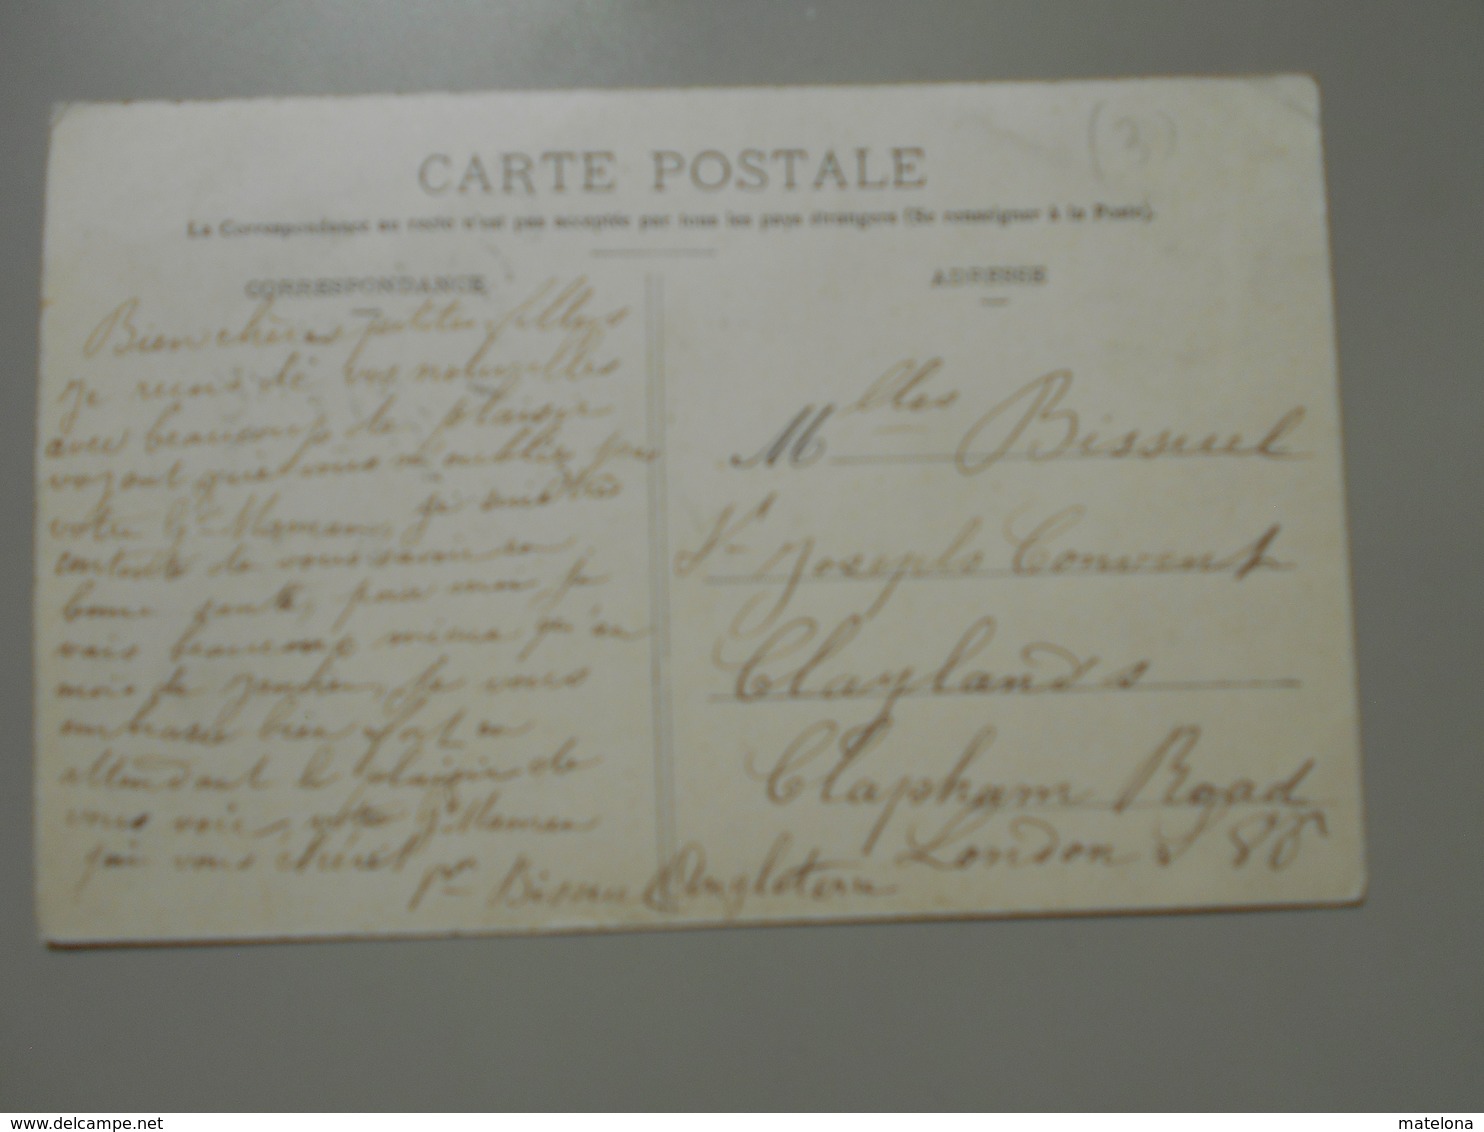 (3)
CARTE POSTALE
La Correspondance au recto n'est pas acceptée par tous les pays étrangers (Se renseigner à la Poste).
CORRESPONDANCE
Bien chères petites filles
Je reçus de vos nouvelles
avec beaucoup de plaisir
voyant que vous n'oubliez pas
votre Gd Maman, je suis très
contente de vous savoir en
bonne santé, pour moi je
vais beaucoup mieux qu'au
mois de
je vous
embrasse bien fort en
attendant le plaisir de
vous voir, votre Gd Maman
qui vous chérit
Vve Bisseu
ADRESSE
Mlles Bissuel
St Josephs Convent
Claylands
Clapham Rgad
London S
Angleterre
www.delcampe.net
matelona